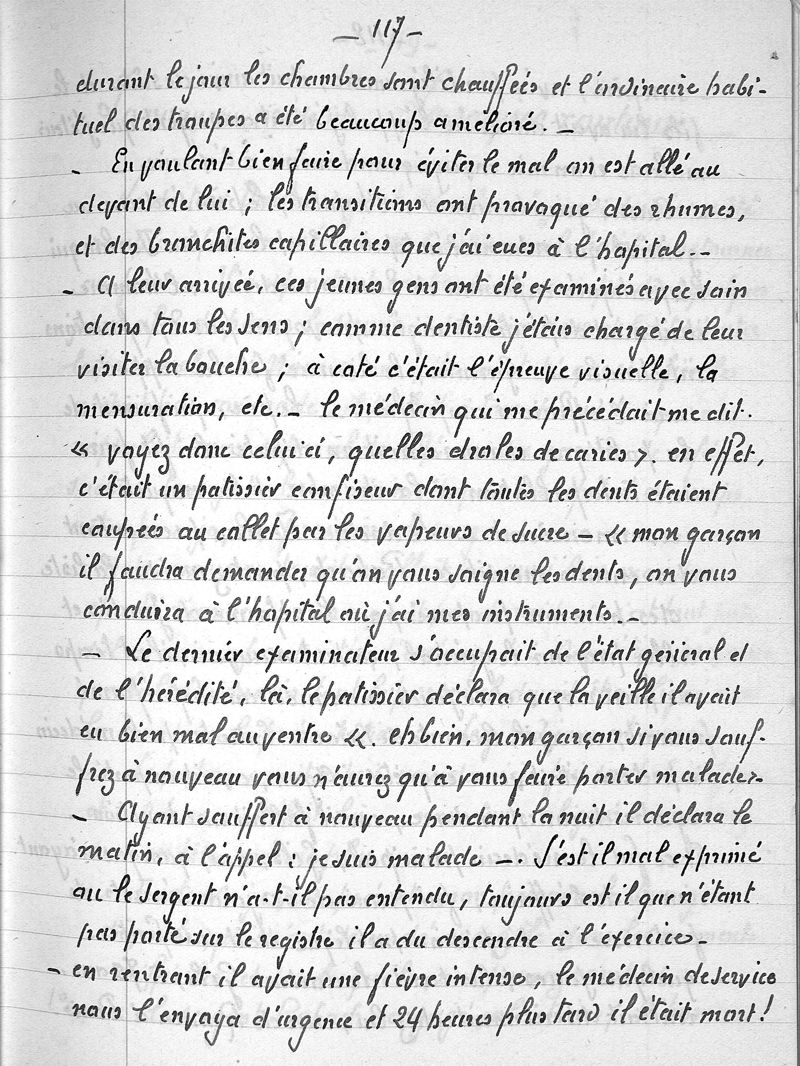 — 117 —
durant le jour les chambres sont chauffées et l'ordinaire habi-
tuel des troupes a été beaucoup amélioré. —
- En voulant bien faire pour éviter le mal on est allé au
devant de lui ; les transitions ont provoqué des rhumes,
et des bronchites capillaires que j'ai eues à l'hopital. -
- A leur arrivée, ces jeunes gens ont été examinés avec soin
dans tous les sens ; comme dentiste j'étais chargé de leur
visiter la bouche ; à coté c'était l'épreuve visuelle, la
mensuration, etc. - le médecin qui me précédait me dit.
« voyez donc celui ci, quelles droles de caries ». en effet,
c'était un patissier confiseur dont toutes les dents étaient
coupées au collet par les vapeurs de sucre - « mon garçon
il faudra demander qu'on vous soigne les dents, on vous
conduira à l'hopital où j'ai mes instruments. -
- Le dernier examinateur s'occupait de l'état général et
de l'hérédité, là, le patissier déclara que la veille il avait
eu bien mal au ventre «. eh bien, mon garçon si vous souf-
frez à nouveau vous n'aurez qu'à vous faire porter malade».
- Ayant souffert à nouveau pendant la nuit il déclara le
matin, à l'appel : je suis malade -. S'est il mal exprimé
ou le sergent n'a-t-il pas entendu, toujours est il que n'étant
pas porté sur le registre il a du descendre à l'exercice -
- en rentrant il avait une fièvre intense, le médecin de service
nous l'envoya d'urgence et 24 heures plus tard il était mort !